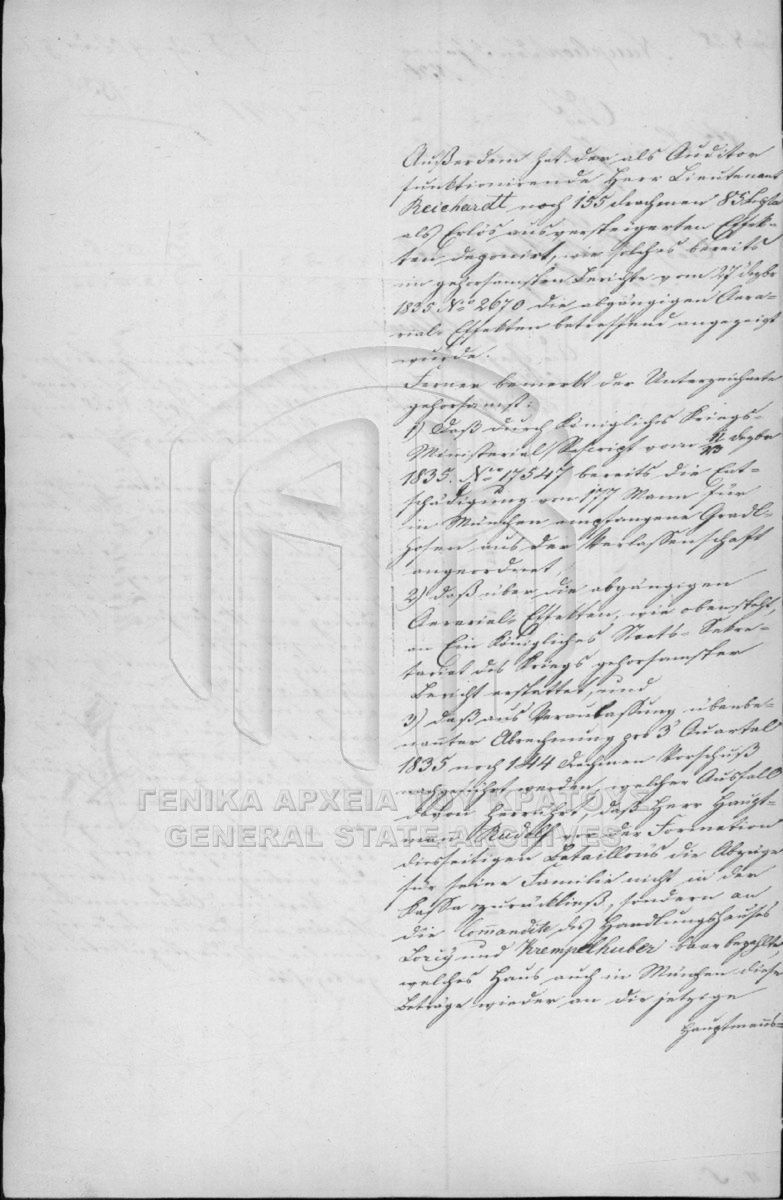 Außerdem hat der als Auditor
funktionirende Herr Lieutenant
Reichardt noch 155 Drachmen 83 Lepta
als Erlös aus versteigerten Effek-
ten deponirt, wie solches bereits
im gehorsamsten Berichte vom 27 Dezbr
1835 No 2670 die abgängigen Aera-
rial Effekten betreffend angezeigt
wurde.
Ferner bemerkt der Unterzeichnete
gehorsamst:
1) daß durch Königliches Kriegs-
Ministerial Rescript vom 11/23 Dezbr
1835. Nro 17547 bereits die Ent-
schädigung von 177 Mann für
in München empfangene Gradl-
hosen aus der Verlassenschaft
angeordnet,
2) daß über die abgängigen
Aerarial-Effekten, wie obensteht,
an Ein Königliches Staats-Sekre-
tariat des Kriegs gehorsamster
Bericht erstattet, und
3) daß aus Veranlassung obenbe-
nannter Abrechnung pro 3t Quartal
1835 noch 144 Drachmen Vorschuß
nachgeführt werden, welcher Ausfall
davon herrührt, daß Herr Haupt-
man Rudolf vor der Formation
diesseitigen Bataillons die Abzüge
für seine Familie nicht in der
Kassa zurückließ, sondern an
die Commandite des Handlungshauses
Lorig und Krempelhuber baar bezahlte,
welches Haus auch in München diese
Beträge wieder an die jetzige
Hauptmanns-
ΓΕΝΙΚΑ ΑΡΧΕΙΑ ΤΟΥ ΚΡΑΤΟΥΣ
GENERAL STATE ARCHIVES